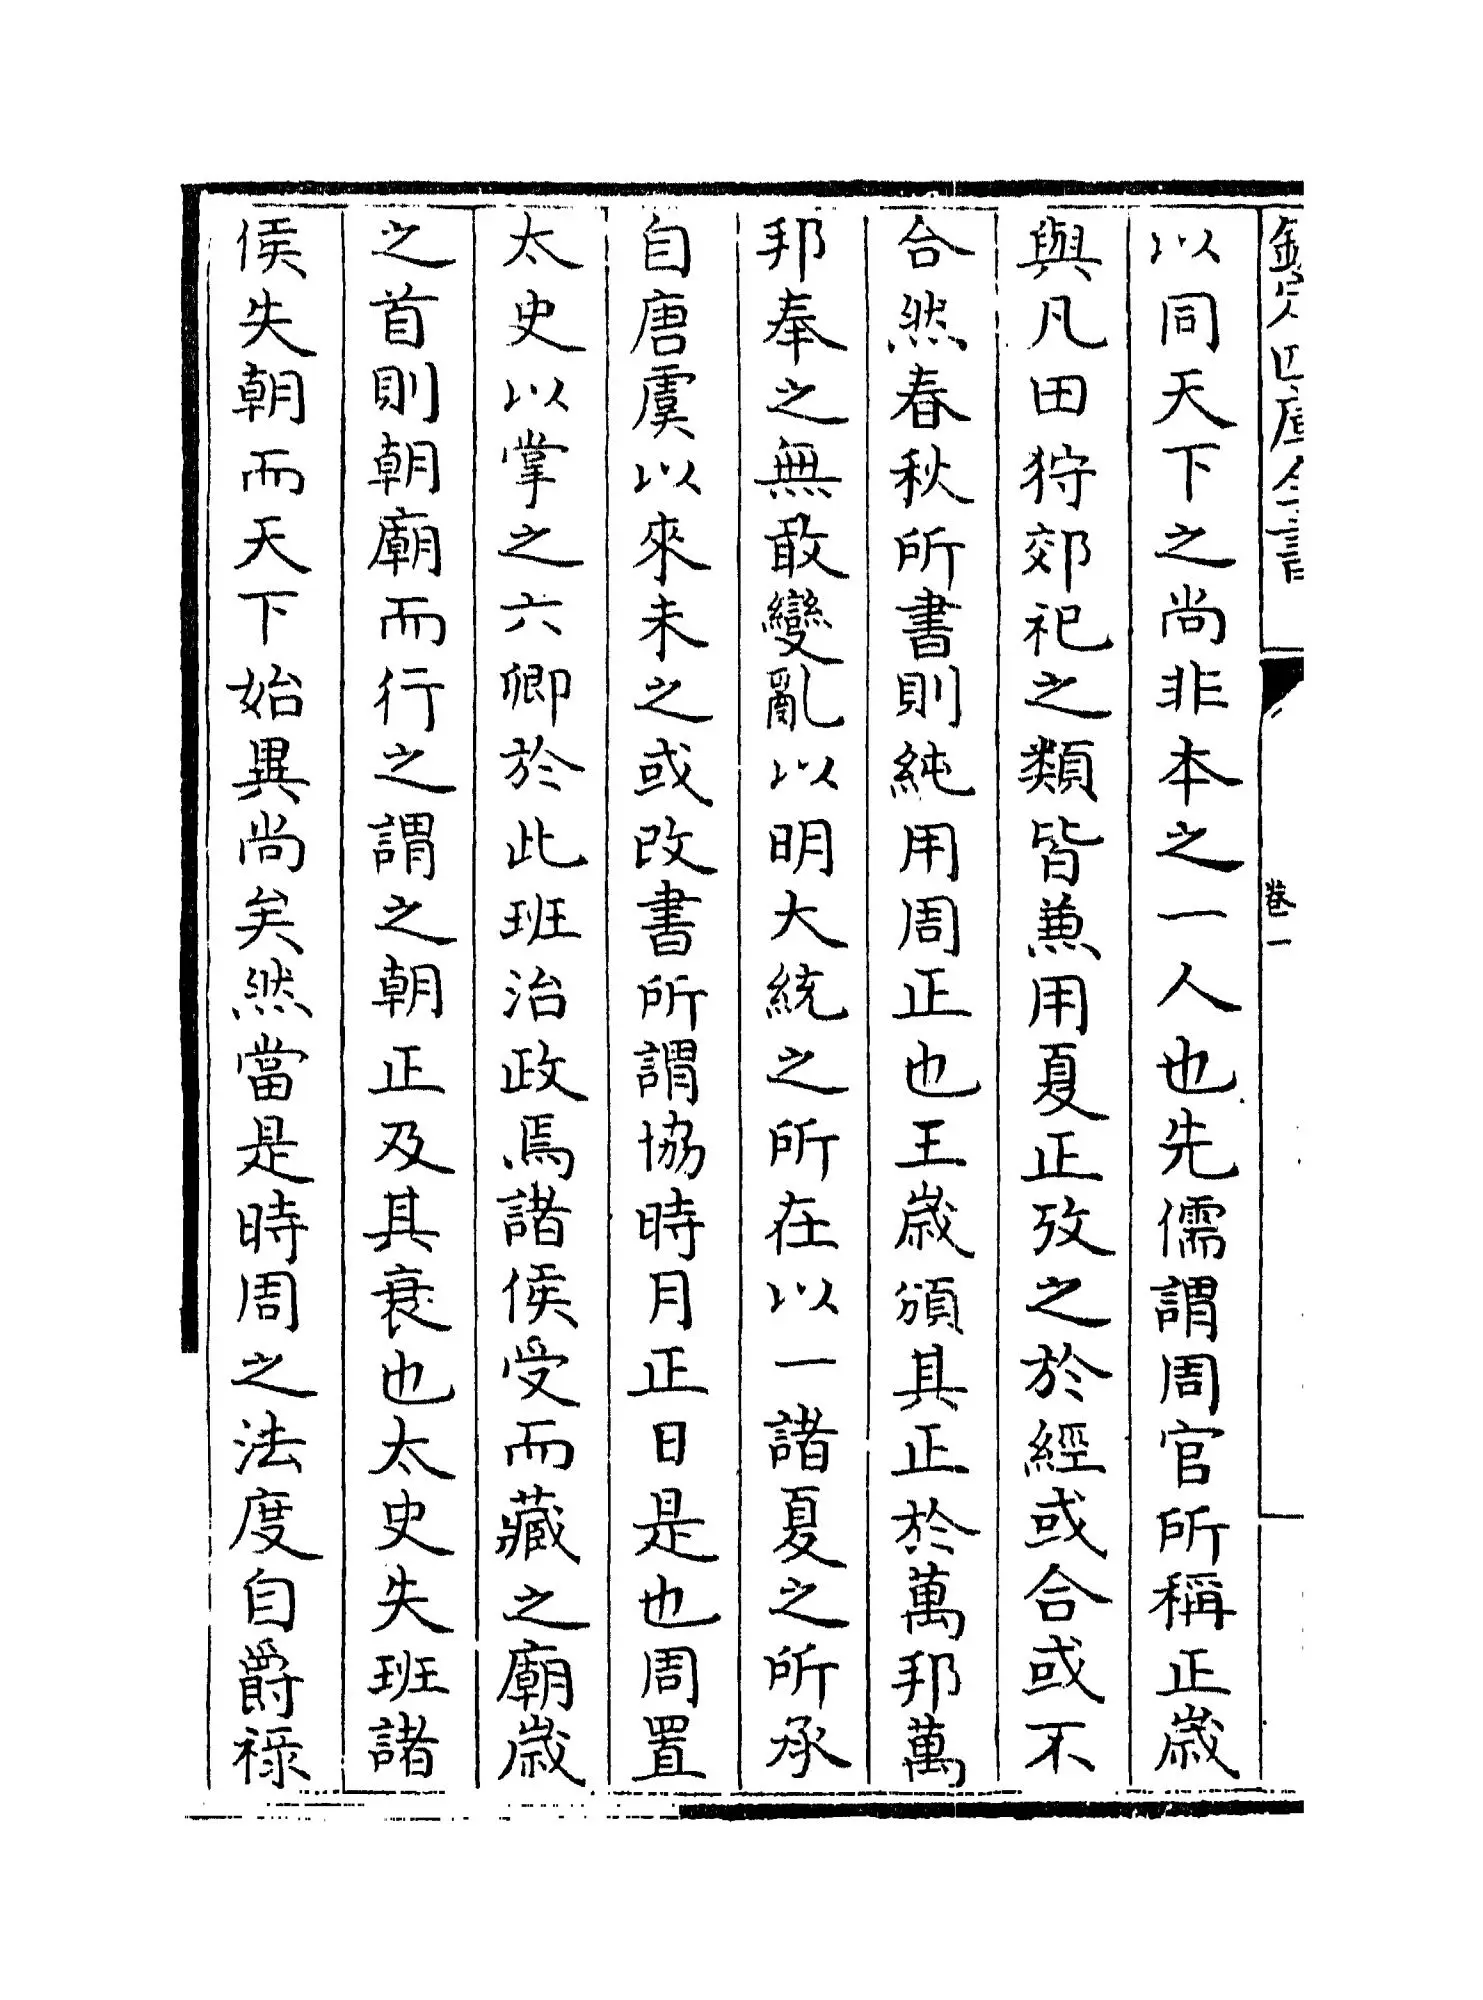 欽定四庫全書
卷一
以同天下之尚非本之一人也先儒謂周官所稱正歲
與凡田狩郊祀之類皆兼用夏正攷之於經或合或不
合然春秋所書則純用周正也王歲頒其正於萬邦萬
邦奉之無敢變亂以明大統之所在以一諸夏之所承
自唐虞以來未之或改書所謂協時月正日是也周置
太史以掌之六卿於此班治政焉諸侯受而藏之廟歲
之首則朝廟而行之謂之朝正及其衰也太史失班諸
侯失朝而天下始異尚矣然當是時周之法度自爵祿